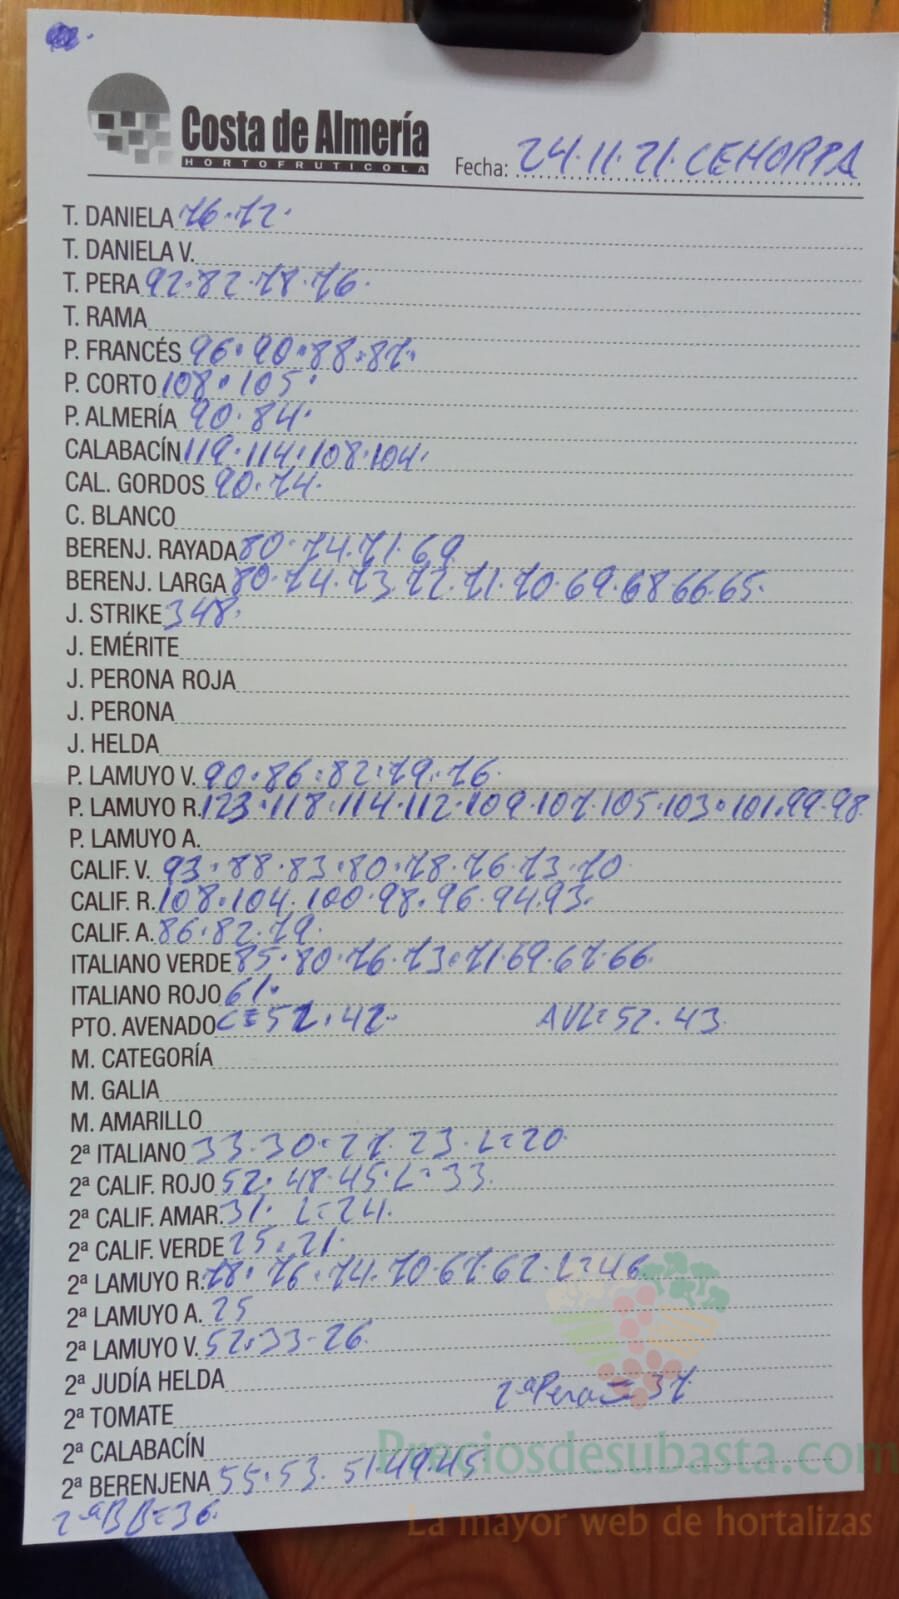 Costa de Almería
HORTOFRUTICOLA
Fecha: 24.11.21. CEHORPA
T. DANIELA 76.72.
T. DANIELA V.
T. PERA 92.82.78.76.
T. RAMA
P. FRANCÉS 96.90.88.87.
P. CORTO 108.105.
P. ALMERÍA 90.84.
CALABACÍN 119.114.108.104.
CAL. GORDOS 90.74.
C. BLANCO
BERENJ. RAYADA 80.74.71.69
BERENJ. LARGA 80.74.73.72.71.70.69.68 66.65.
J. STRIKE 348.
J. EMÉRITE
J. PERONA ROJA
J. PERONA
J. HELDA
P. LAMUYO V. 90.86.82.79.76.
P. LAMUYO R. 123.118.114.112.109.107.105.103.101.99.98.
P. LAMUYO A.
CALIF. V. 93.88.83.80.78.76.73.70
CALIF. R. 108.104.100.98.96.94.93.
CALIF. A. 86.82.79.
ITALIANO VERDE 85.80.76.73.71.69.67.66.
ITALIANO ROJO 61.
PTO. AVENADO C=52.42. AVL=52.43.
M. CATEGORÍA
M. GALIA
M. AMARILLO
2ª ITALIANO 33.30.27.23.L=20
2ª CALIF. ROJO 52.48.45.L=33.
2ª CALIF. AMAR. 31. L=24.
2ª CALIF. VERDE 25.21.
2ª LAMUYO R. 78.76.74.70.67.62.L=46
2ª LAMUYO A. 25
2ª LAMUYO V. 52.33.26.
2ª JUDÍA HELDA
2ª Pera=37
2ª TOMATE
2ª CALABACÍN
Preciosdesubasta.com
2ª BERENJENA 55.53.51.49.45
2ª BB=36.
La mayor web de hortalizas